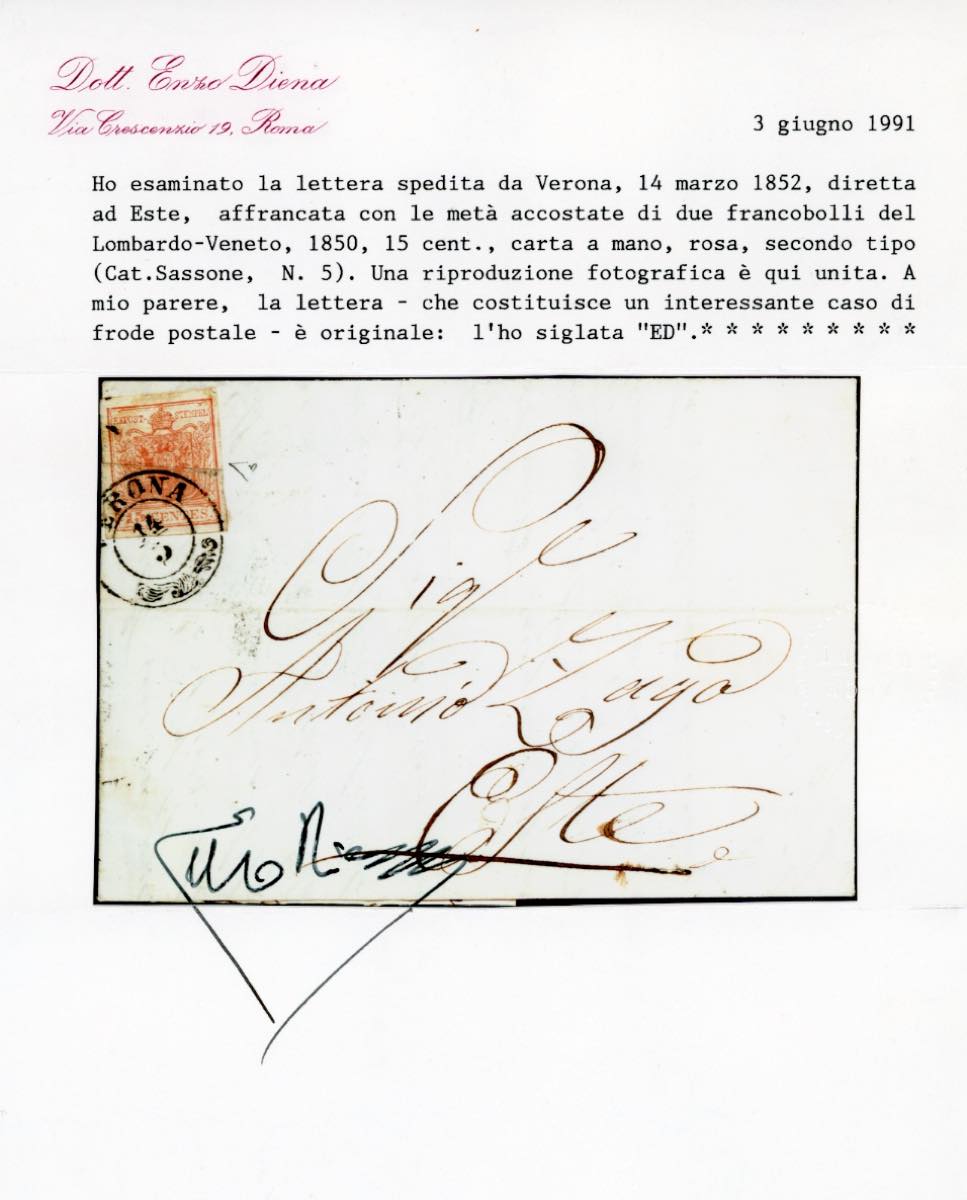 Dott. Enzo Diena
Via Crescenzio 19, Roma
3 giugno 1991
Ho esaminato la lettera spedita da Verona, 14 marzo 1852, diretta
ad Este, affrancata con le metà accostate di due francobolli del
Lombardo-Veneto, 1850, 15 cent., carta a mano, rosa, secondo tipo
(Cat.Sassone, N. 5). Una riproduzione fotografica è qui unita. A
mio parere, la lettera - che costituisce un interessante caso di
frode postale - è originale: l'ho siglata "ED".* * * * * * * * *
STEMPEL
CENTES
VERONA
14
3
Sig
Antonio Zago
Este
Enzo Diena